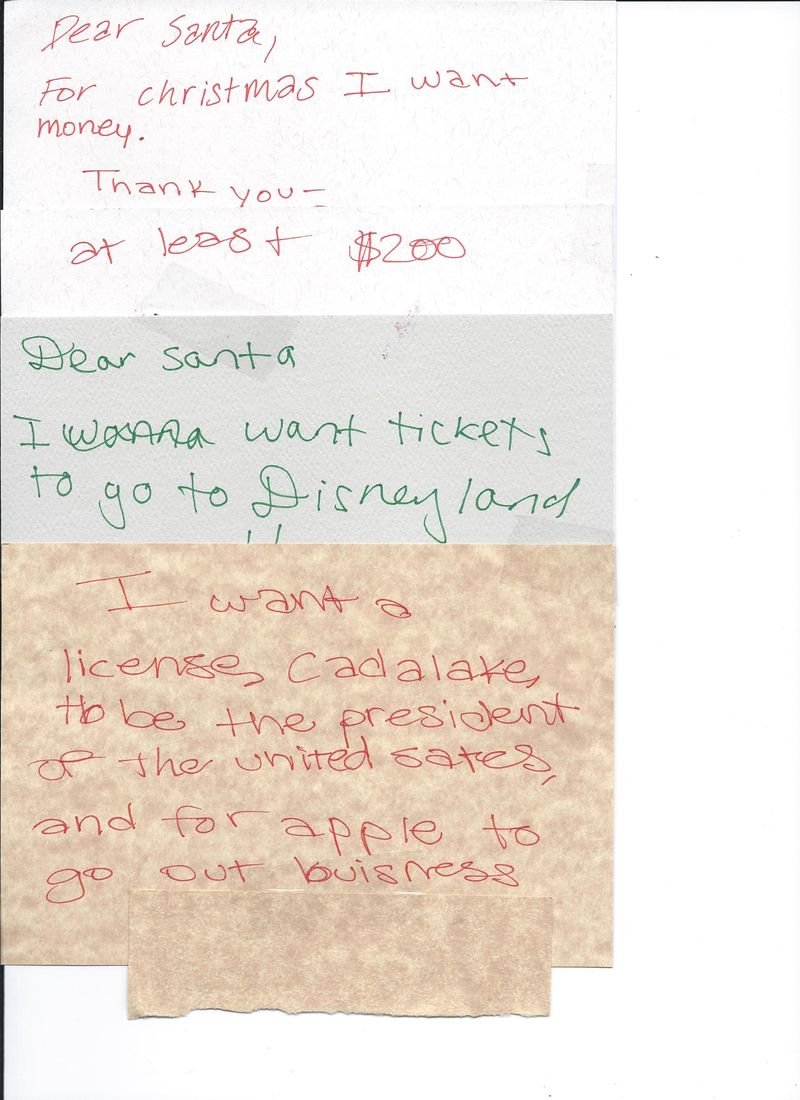 Dear Santa,
For christmas I want
money.
Thank you-
at least $200
Dear santa
I wanna want tickets
to go to Disneyland
I want a
license, Cadalake,
to be the president
of the united sates,
and for apple to
go out buisness